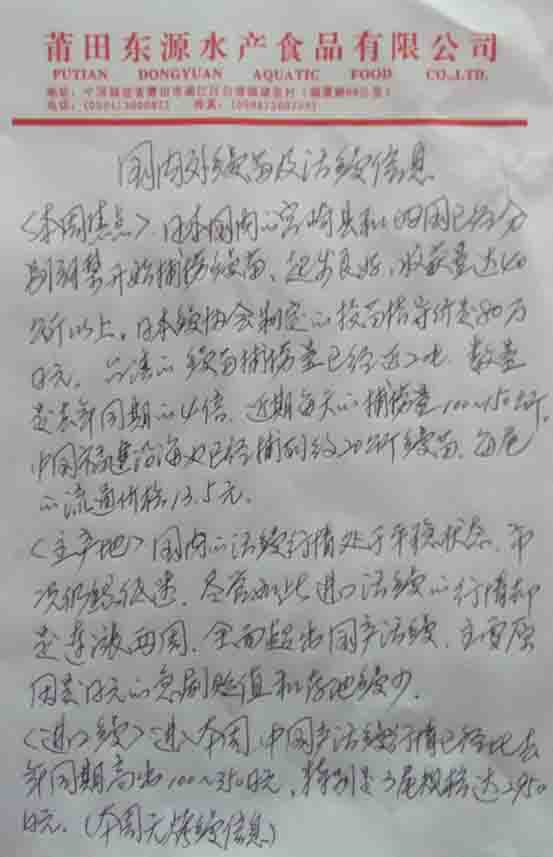 莆田东源水产食品有限公司
PUTIAN DONGYUAN AQUATIC FOOD CO.,LTD.
国内外鳗苗及活鳗信息
<本周焦点> 日本国内的宫崎县和四国已经分
别解禁开始捕捞鳗苗、起步良好,收获量达40
公斤以上。日本鳗协会制定的投苗指导价是80万
日元。台湾的鳗苗捕捞量已经近2吨,数量
是去年同期的4倍,近期每天的捕捞量100~150公斤,
中国福建沿海也已经捕到约20公斤鳗苗,每尾
的流通价格13.5元。
<主产地> 国内的活鳗行情处于平稳状态,年
次仍然低迷。尽管如此进口活鳗的行情却
是连涨两周,全面超出国产活鳗,主要原
因是日元的急剧贬值和存池鳗少。
<进口鳗> 进入本周,中国产活鳗行情已经比去
年同期高出100~350日元,特别是3尾规格达2950
日元。(本周无烤鳗信息)